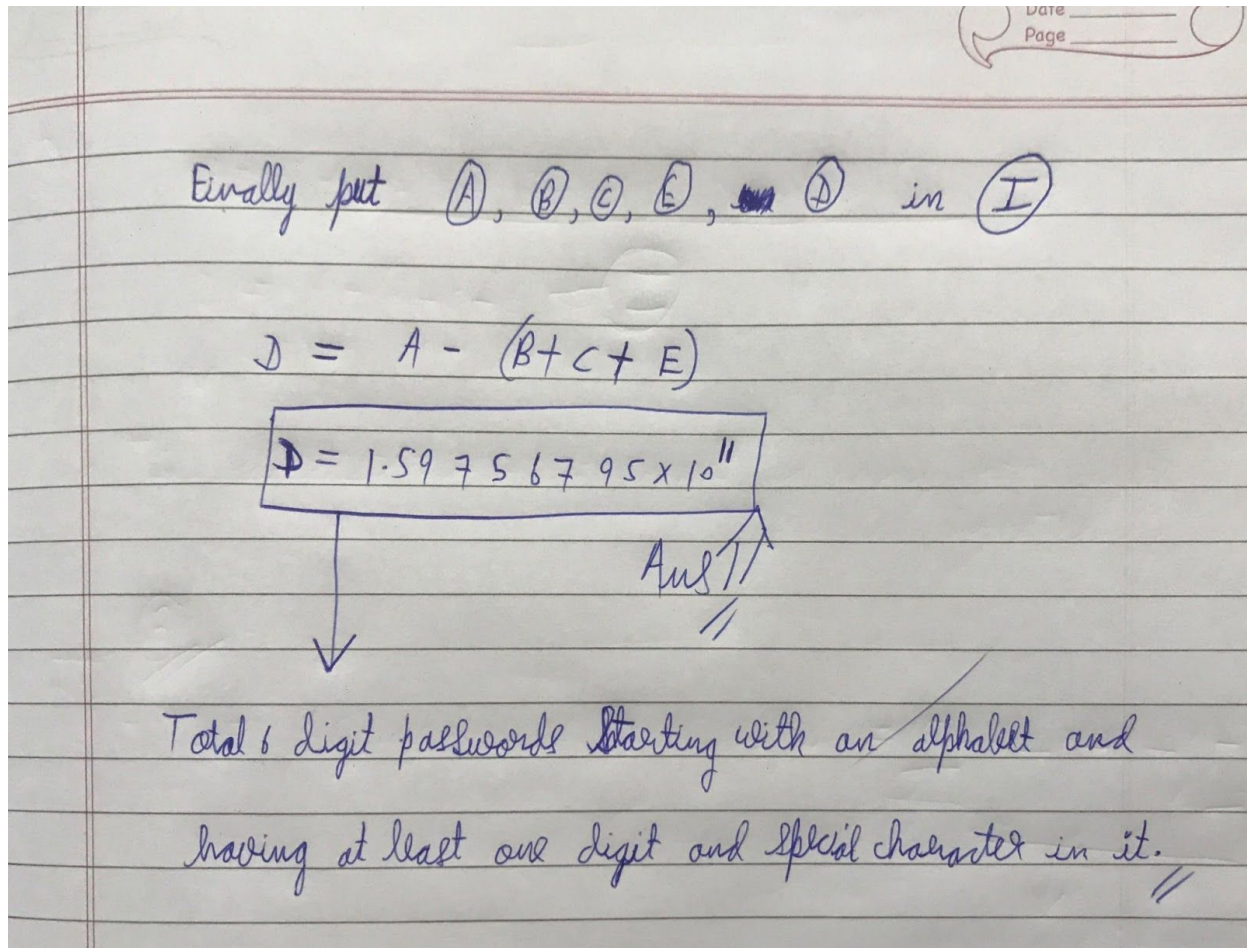 Date
Page
Finally put A, B, C, E, D in I
D = A - (B + C + E)
D = 1.59756795 x 10¹¹
Ans
Total 6 digit passwords Starting with an alphabet and
having at least one digit and special character in it.